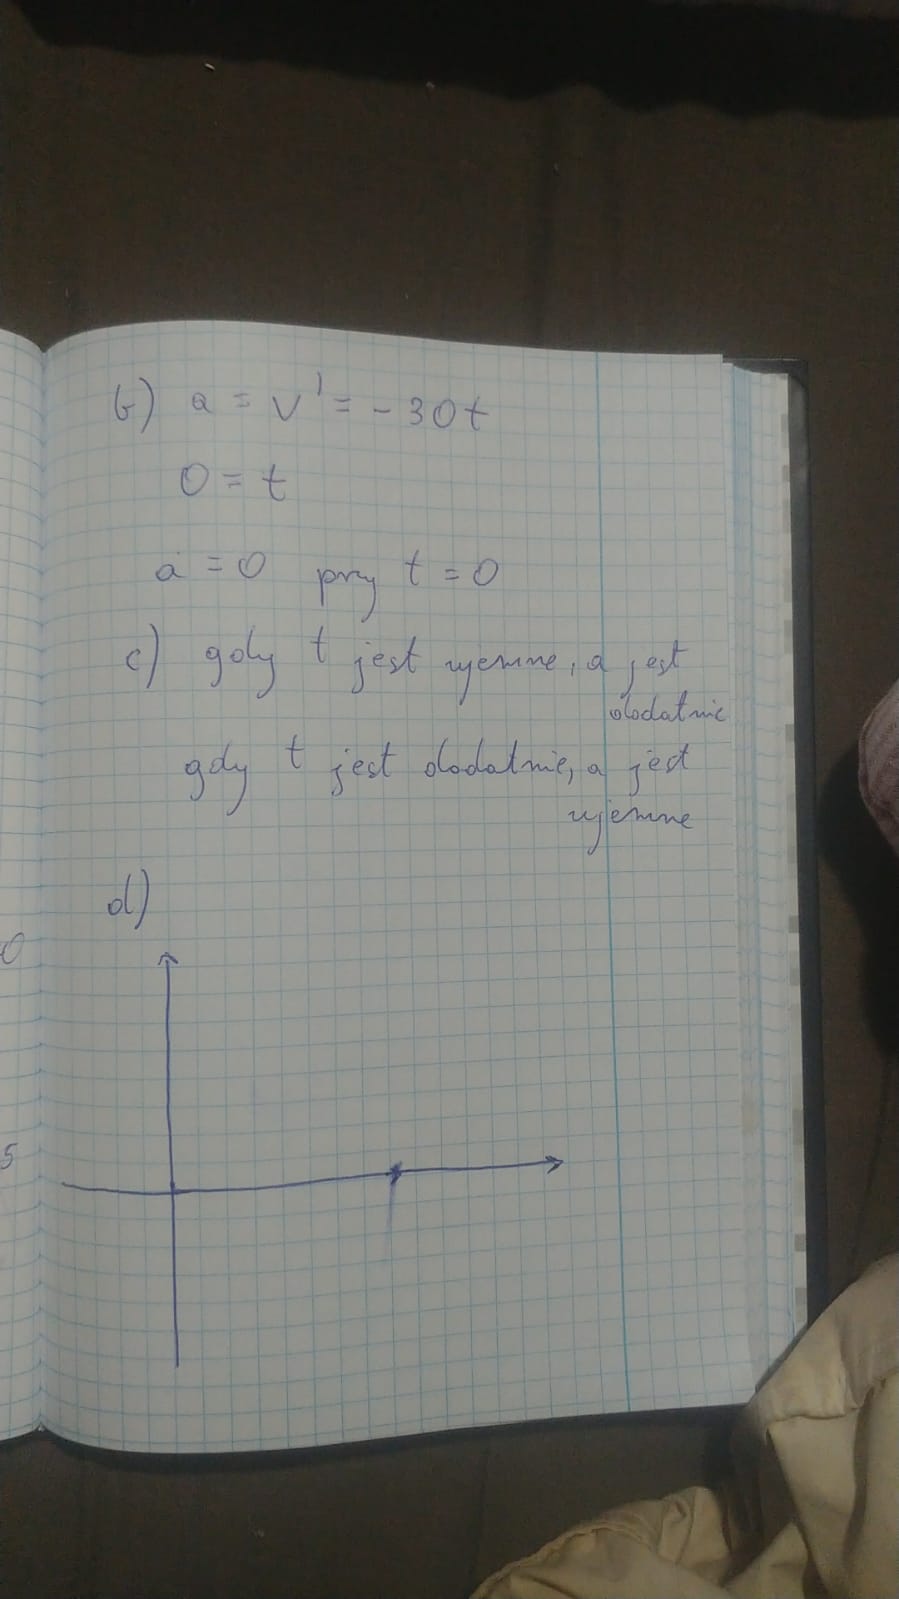 0
5
b) a = v' = -30t
0 = t
a = 0 przy t = 0
c) gdy t jest ujemne, a jest
dodatnie
gdy t jest dodatnie, a jest
ujemne
d)